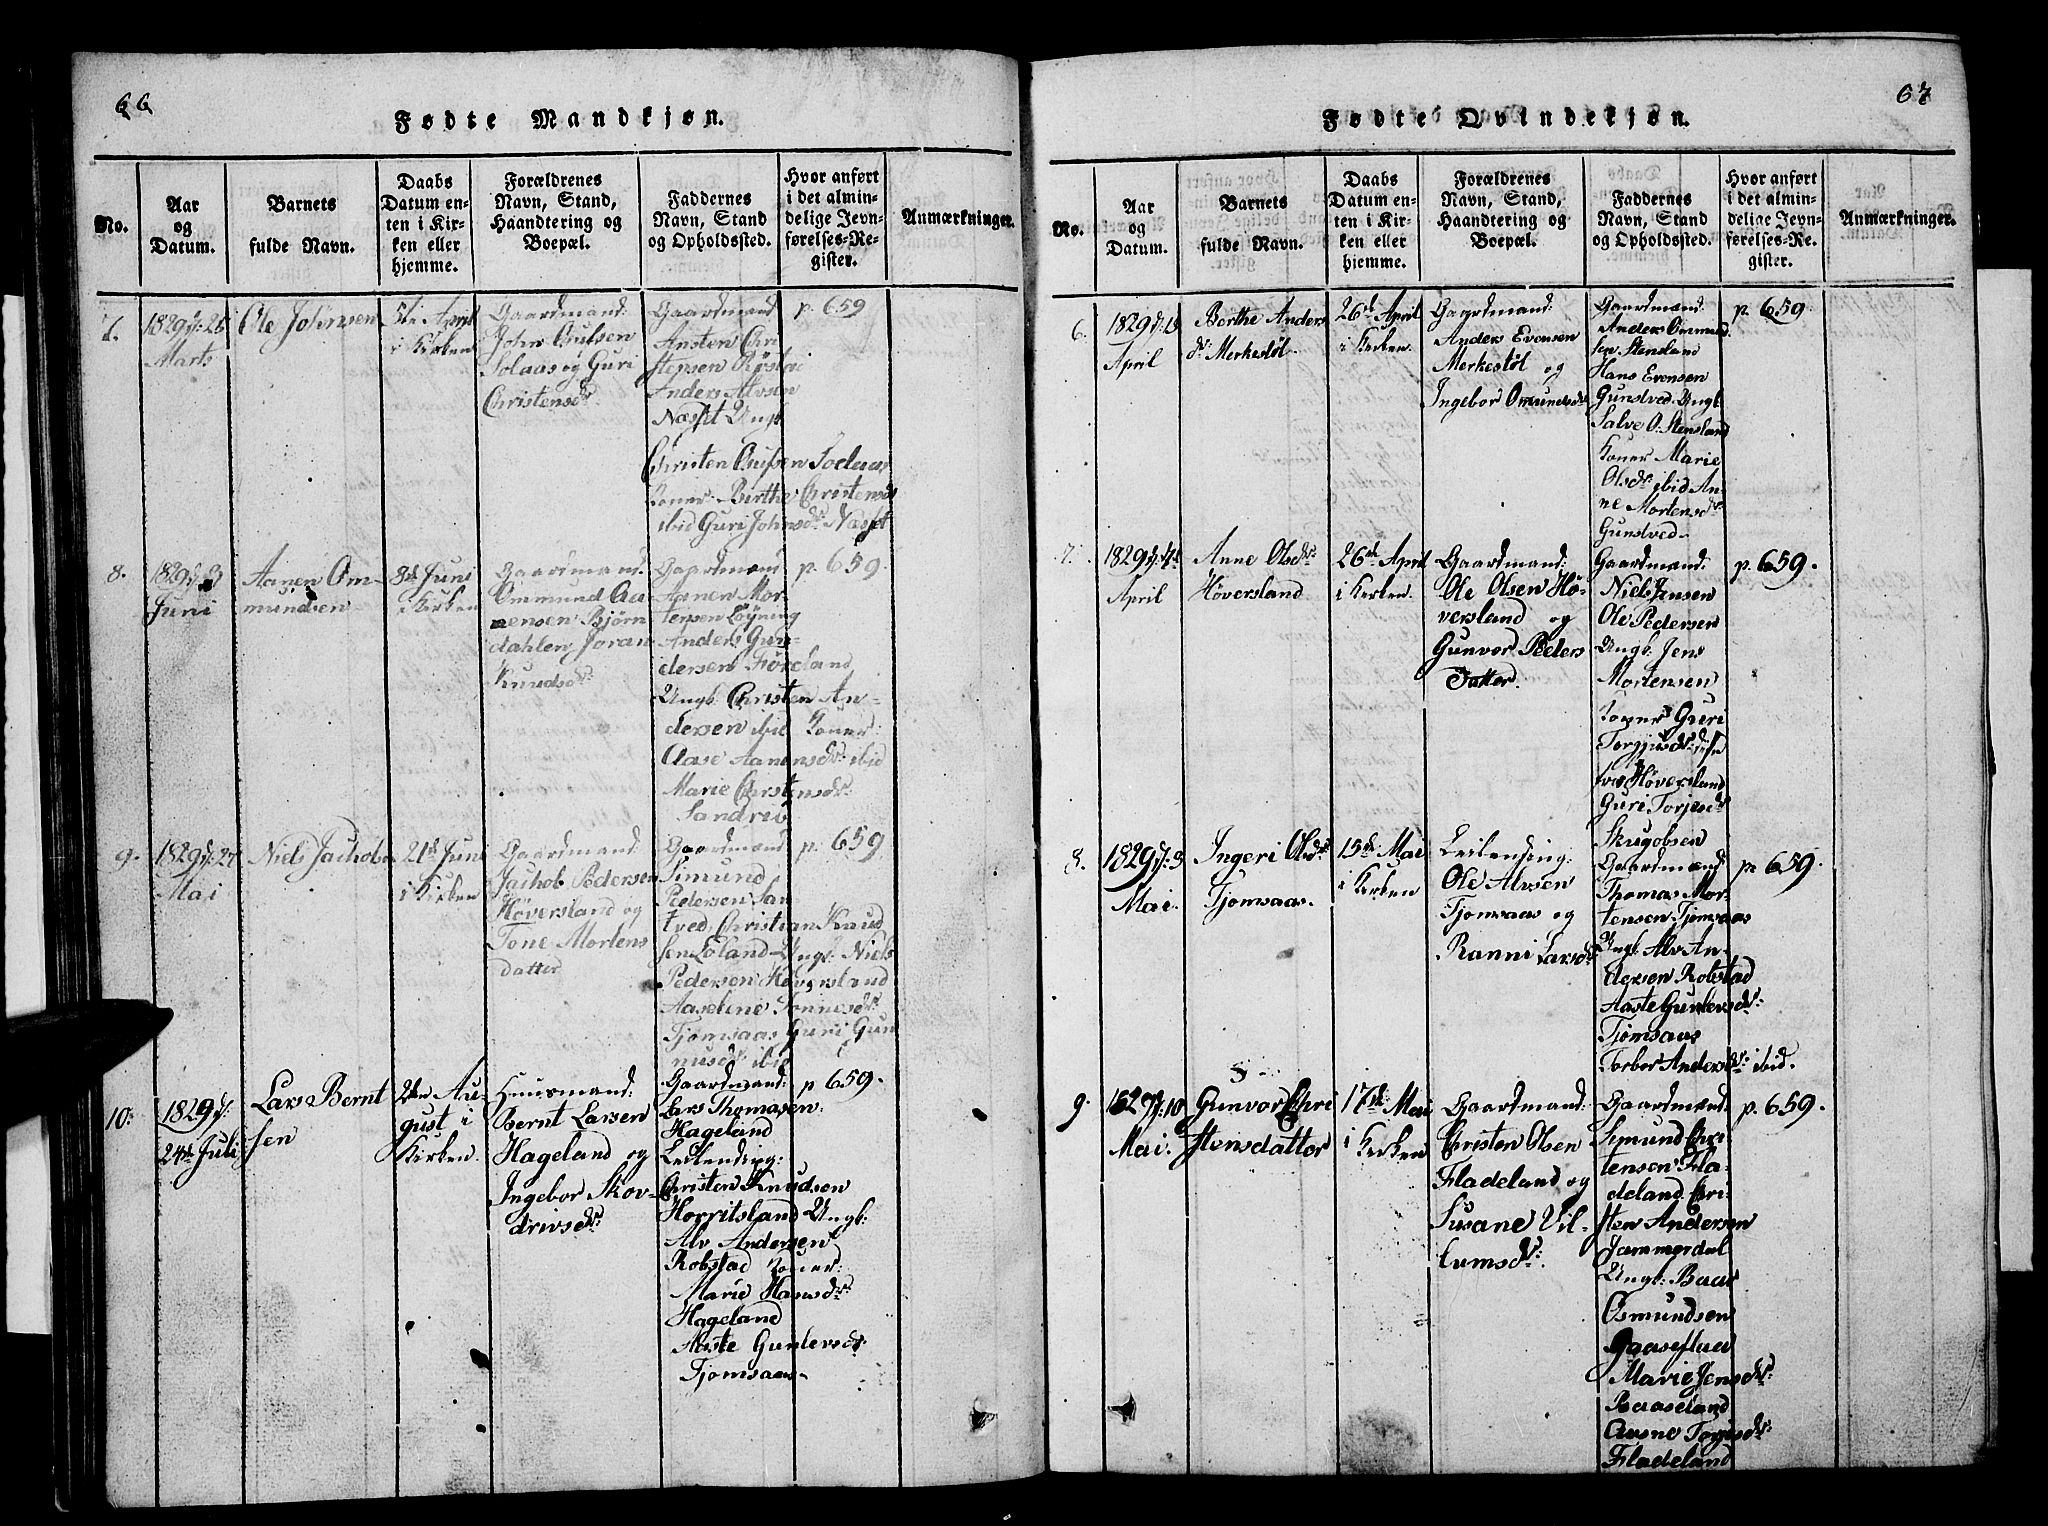 66
Fødte Mandkjøn.
No.
Aar
og
Datum.
Barnets
fulde Navn.
Daabs
Datum en-
ten i Kir-
ken eller
hjemme.
Forældrenes
Navn, Stand,
Haandtering og
Boepæl.
Faddernes
Navn, Stand
og Opholdssted.
Hvor anført
i det almin-
delige Jevn-
førelses-Re-
gister.
Anmærkninger.
7.
1829 d: 26
Marts
Ole Johnsen
5te April
i Kirken
Gaardmand:
John
Solaas og Guri
Christensdr:
Gaardmand
Ansten Chri
stensen
Anders Alvsen
Næset Ungk
Christen
Koner: Birthe Christensdr
ibid Guri Johnsdr: Næset
p. 659
8.
1829 d: 3
Juni
Aanen Om-
mundsen
8de Juni
i Kirken
Gaardmand:
Ommund Aa-
nensen Bjørn
dahlen Joran
Knudsdr:
Gaardmand
Aanen Mor-
tensen Løyning
Anders Gun-
dersen Føreland
Ungk: Christen An-
dersen ibid Koner:
Aase Aanensdr: ibid
Marie Christensdr:
Sandrib
p. 659.
9.
1829 d: 27
Mai
Niels Jachobsen
21de Juni
i Kirken
Gaardmand:
Jachob Pedersen
Høversland og
Tone Mortens
datter
Gaardmand
Simund
Pedersen San
tved, Christian Knud
sen Loland Ungk: Niels
Pedersen Høversland
Aaseline Tonnesdr:
Tjomsaas Guri Gun
nusdr: ibid
p. 659
10:
1829 d:
24de Juli
Lars Bernt
sen
2den Au-
gust i
Kirken.
Huusmand:
Bernt Larsen
Hageland og
Ingebor Skov-
drivsdr:
Gaardmand:
Lars Thomasen:
Hageland
Leilending:
Christen Knudsen
Horritsland Ungk:
Alv Andersen
Robstad Koner:
Marie Hansdr:
Hageland
Aaste Gunlevsdr:
Tjomsaas.
p 659.
67
Fødte Qvindekjøn.
No.
Aar
og
Datum.
Barnets
fulde Navn.
Daabs
Datum en-
ten i Kir-
ken eller
hjemme.
Forældrenes
Navn, Stand,
Haandtering og
Boepæl.
Faddernes
Navn, Stand
og Opholdssted.
Hvor anført
i det almin-
delige Jevn-
førelses-Re-
gister.
Anmærkninger.
6.
1829 d:
April
Berthe Anders
dr: Merkestøl.
26de April
i Kirken.
Gaardmand:
Anders Evensen
Merkestøl og
Ingebor Omundsdr
Gaardmand:
Anders Ommund
sen Stensland
Hans Evensen
Gunstved. Ungk
Salve O: Stensland
Koner Marie
Olsdr: ibid An-
ne Mortensdr:
Gunstved.
p. 659.
7.
1829 d: 4de
April
Anne Olsdr:
Høversland
26de April
i Kirken.
Gaardmand:
Ole Olsen Hø-
versland og
Gunvor Peders
Datter.
Gaardmand:
Niels Jensen
Ole Pedersen
Ungk. Jens
Mortensen
Koner Guri
Torgjusdr:
Høversland
Guri Torjusdr
p. 659.
8.
1829 d: 3
Mai.
Ingeri Olsdr:
Tjomsaas.
15de Mai
i Kirken
Leilending:
Ole Alvsen
Tjomsaas og
Ranni Larsdr
Gaardmand
Thomas Mor-
tensen Tjomsaas
Ungk. Alv An-
dersen Robstad
Aaste Gunlevsdr:
Tjomsaas
Torbor Andersdr: ibid.
p. 659.
9.
1829 d: 10
Mai.
Gunvor Chri
stensdatter
17de Mai
i Kirken
Gaardmand:
Christen Olsen
Fladeland og
Susane Vil-
lumsdr:
Gaardmand:
Simund Chri
stensen Fla-
deland. Chri-
sten Andersen
Jammerdal
Ungk: Baar
Osmundsen
Gaaseflaa
Marie Jensdr:
Baaseland
Torjusdr:
Fladeland
p. 659.